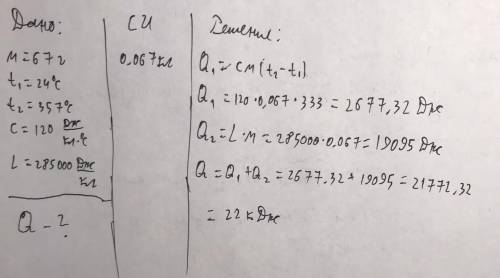 Дано:
м = 67 г
t₁ = 24°C
t₂ = 357°C
C = 120 Дж/кг·°C
L = 285000 Дж/кг
Q - ?
СИ
0,067 кг
Решение:
Q₁ = cм(t₂-t₁)
Q₁ = 120·0,067·333 = 2677,32 Дж
Q₂ = L·м = 285000·0,067 = 19095 Дж
Q = Q₁ + Q₂ = 2677,32 + 19095 = 21772,32
= 22 кДж